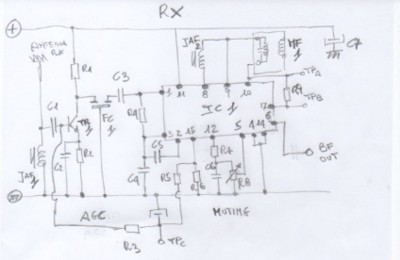 RX
+
ANTENNA
RX
JAF
2
MF
1
C7
R1
C3
TPA
1
11
8
9
10
C1
R4
IC 1
17
R9
TPB
TR
1
FC
1
3
2
15
12
5
4
14
R2
C2
C5
R7
BF
OUT
JAF
1
C4
R5
R6
C6
R8
AGC
MUTING
R3
TPC